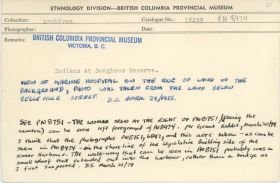 ETHNOLOGY DIVISION—BRITISH COLUMBIA PROVINCIAL MUSEUM
Subject: Archives
Catalogue No.: 18259 PN 8474
Photographer: Date:
Remarks: BRITISH COLUMBIA PROVINCIAL MUSEUM
VICTORIA, B. C.
Indians at Songhees Reserve.
VIEW OF MARINE HOSPITAL ON THE RISE OF LAND IN THE
BACKGROUND, PHOTO WAS TAKEN FROM THE LAND BELOW
BELLEVILLE STREET. D.I. APRIL 29/1975.
SEE PN 8751 - THE WOMAN SEEN AT THE RIGHT OF PN 8751 (facing the
camera) can be seen left foreground of PN 8474. March 30/79
I think that the photographs PN 8751, 6842, and this were taken as can be
seen in PN 8474 on the shoreline of the legislative building side of the
inner Harbour. The walk-way that can be seen in PN 8751 probably was a
small wharf that extended out into the harbour, rather than a bridge as
I first suspected. D.I. March 31/79